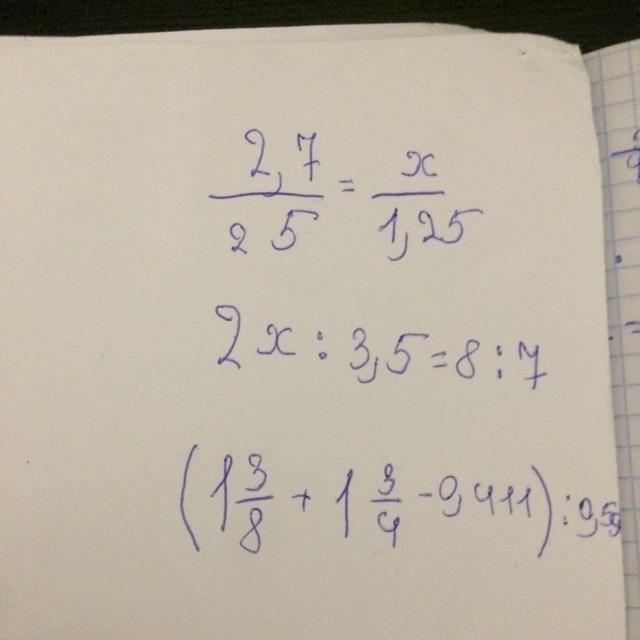 2,7/25 = x/1,25
2x : 3,5 = 8 : 7
(1 3/8 + 1 3/4 - 0,411) :